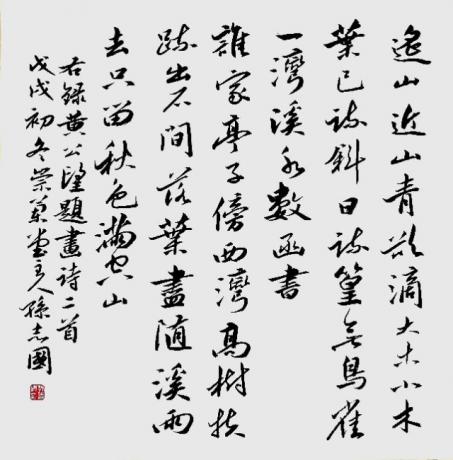 遙山近山青欲滴大木小木
葉已疏斜日疏篁無鳥雀
一灣溪水數函書
誰家亭子傍西灣高樹扶
疏出石間落葉盡隨溪雨
去只留秋色滿空山
右錄黃公望題畫詩二首
戊戌初冬崇堂主人孫志國